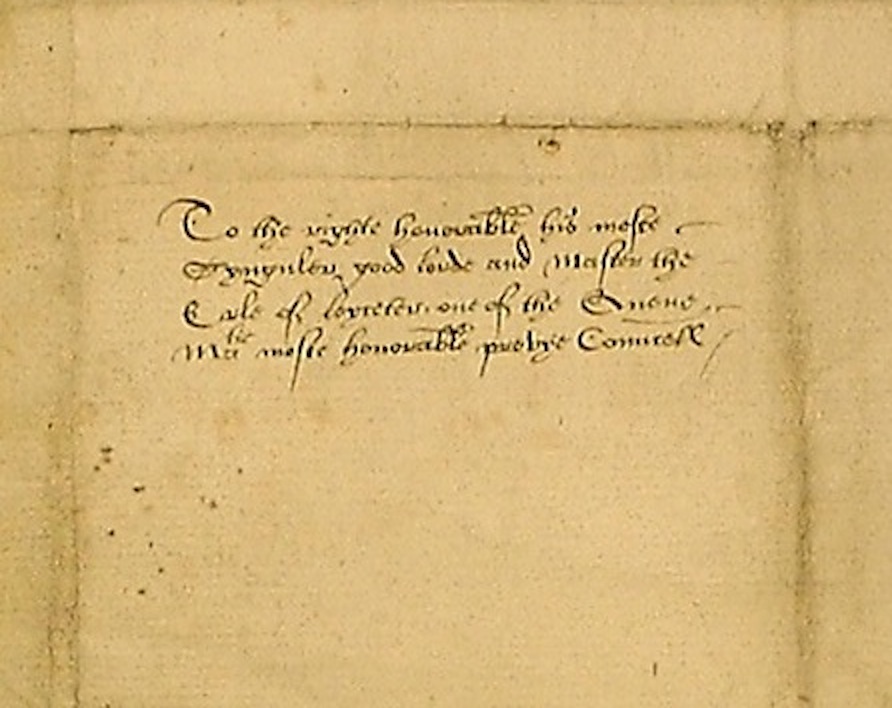 To the righte honorable his moste
Synguler good lorde and Master the
Erle of leycester, one of the Quene
Ma^ties moste honorable prevye Counsell